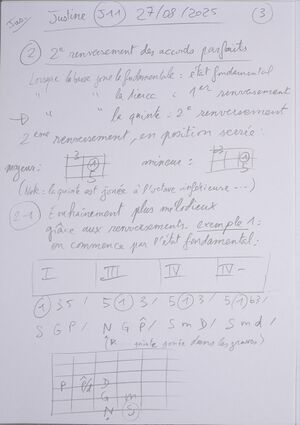 Justine J11 27/08/2025 3
2 2e renversement des accords parfaits
Lorsque la basse joue la fondamentale = état fondamental
" " la tierce : 1er renversement
" " la quinte = 2e renversement
2ème renversement, en position serrée:
majeur: b3 1 5 mineur: b3 1 5
(Note: la quinte est jouée à l'octave inférieure ...)
2-1 Entraînement plus mélodieux
grâce aux renversements. exemple 1:
on commence par l'état fondamental:
I III IV IV-
1 3 5 / 5 1 3 / 5 1 3 / 5 1 b3 /
S G P / N G P / S m D / S m d /
quinte jouée dans les graves)
P D
G m
N S